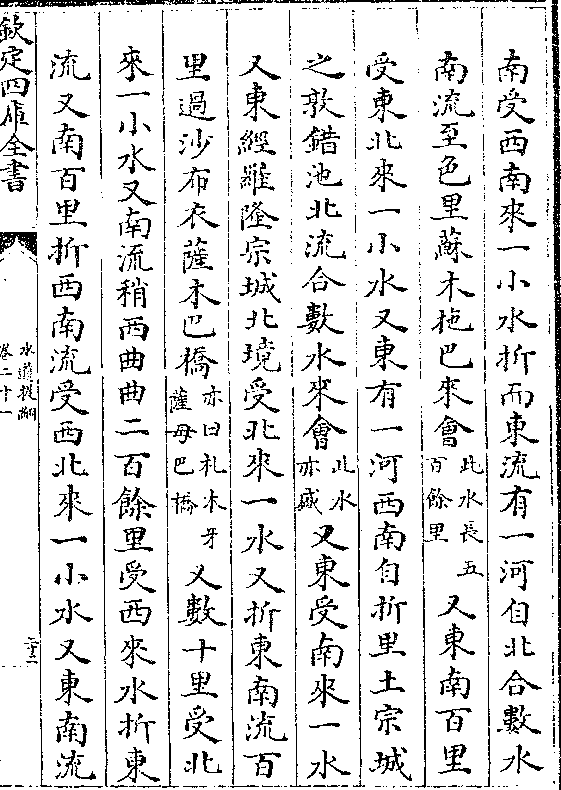 南受西南來一小水折而東流有一河自北合數水
南流至色里蘇木拖巴來會此水長五百餘里又東南百里
受東北來一小水又東有一河西南自折里土宗城
之敦錯池北流合數水來會此水亦盛又東受南來一水
又東經羅隆宗城北境受北來一水又折東南流百
里過沙布衣薩木巴橋亦曰札木牙薩母巴橋又數十里受北
來一小水又南流稍西曲曲二百餘里受西來水折東
流又南百里折西南流受西北來一小水又東南流
欽定四庫全書
水道提綱
卷二十一